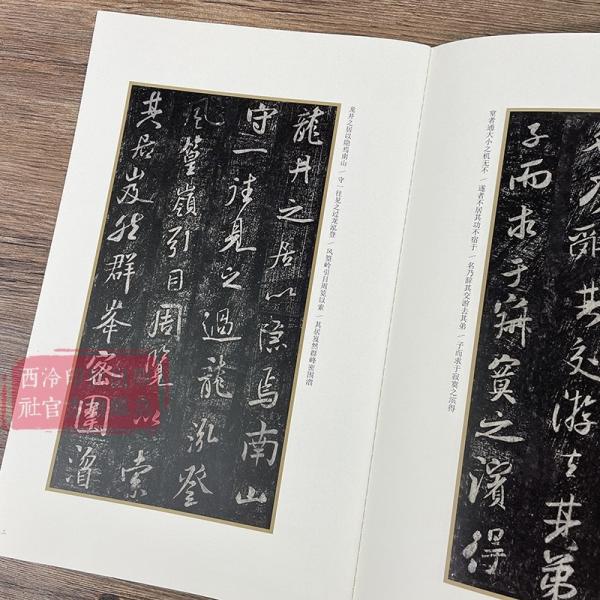 乃辭其交游去其弟
子而求于寂寞之濱得
室者通大小之机无不／遂者不居其功不宿于／名乃辞其交游去其弟／子而求于寂寞之滨得
龙井之居以隐焉南山／守一往见之过龙泓登／风篁岭引目周览以索／其居岌然群峰密围溶
龍井之居以隱焉南山
守一往見之過龍泓登
風篁嶺引目周覽以索
其居岌然群峯密圍
西泠印
社官
二